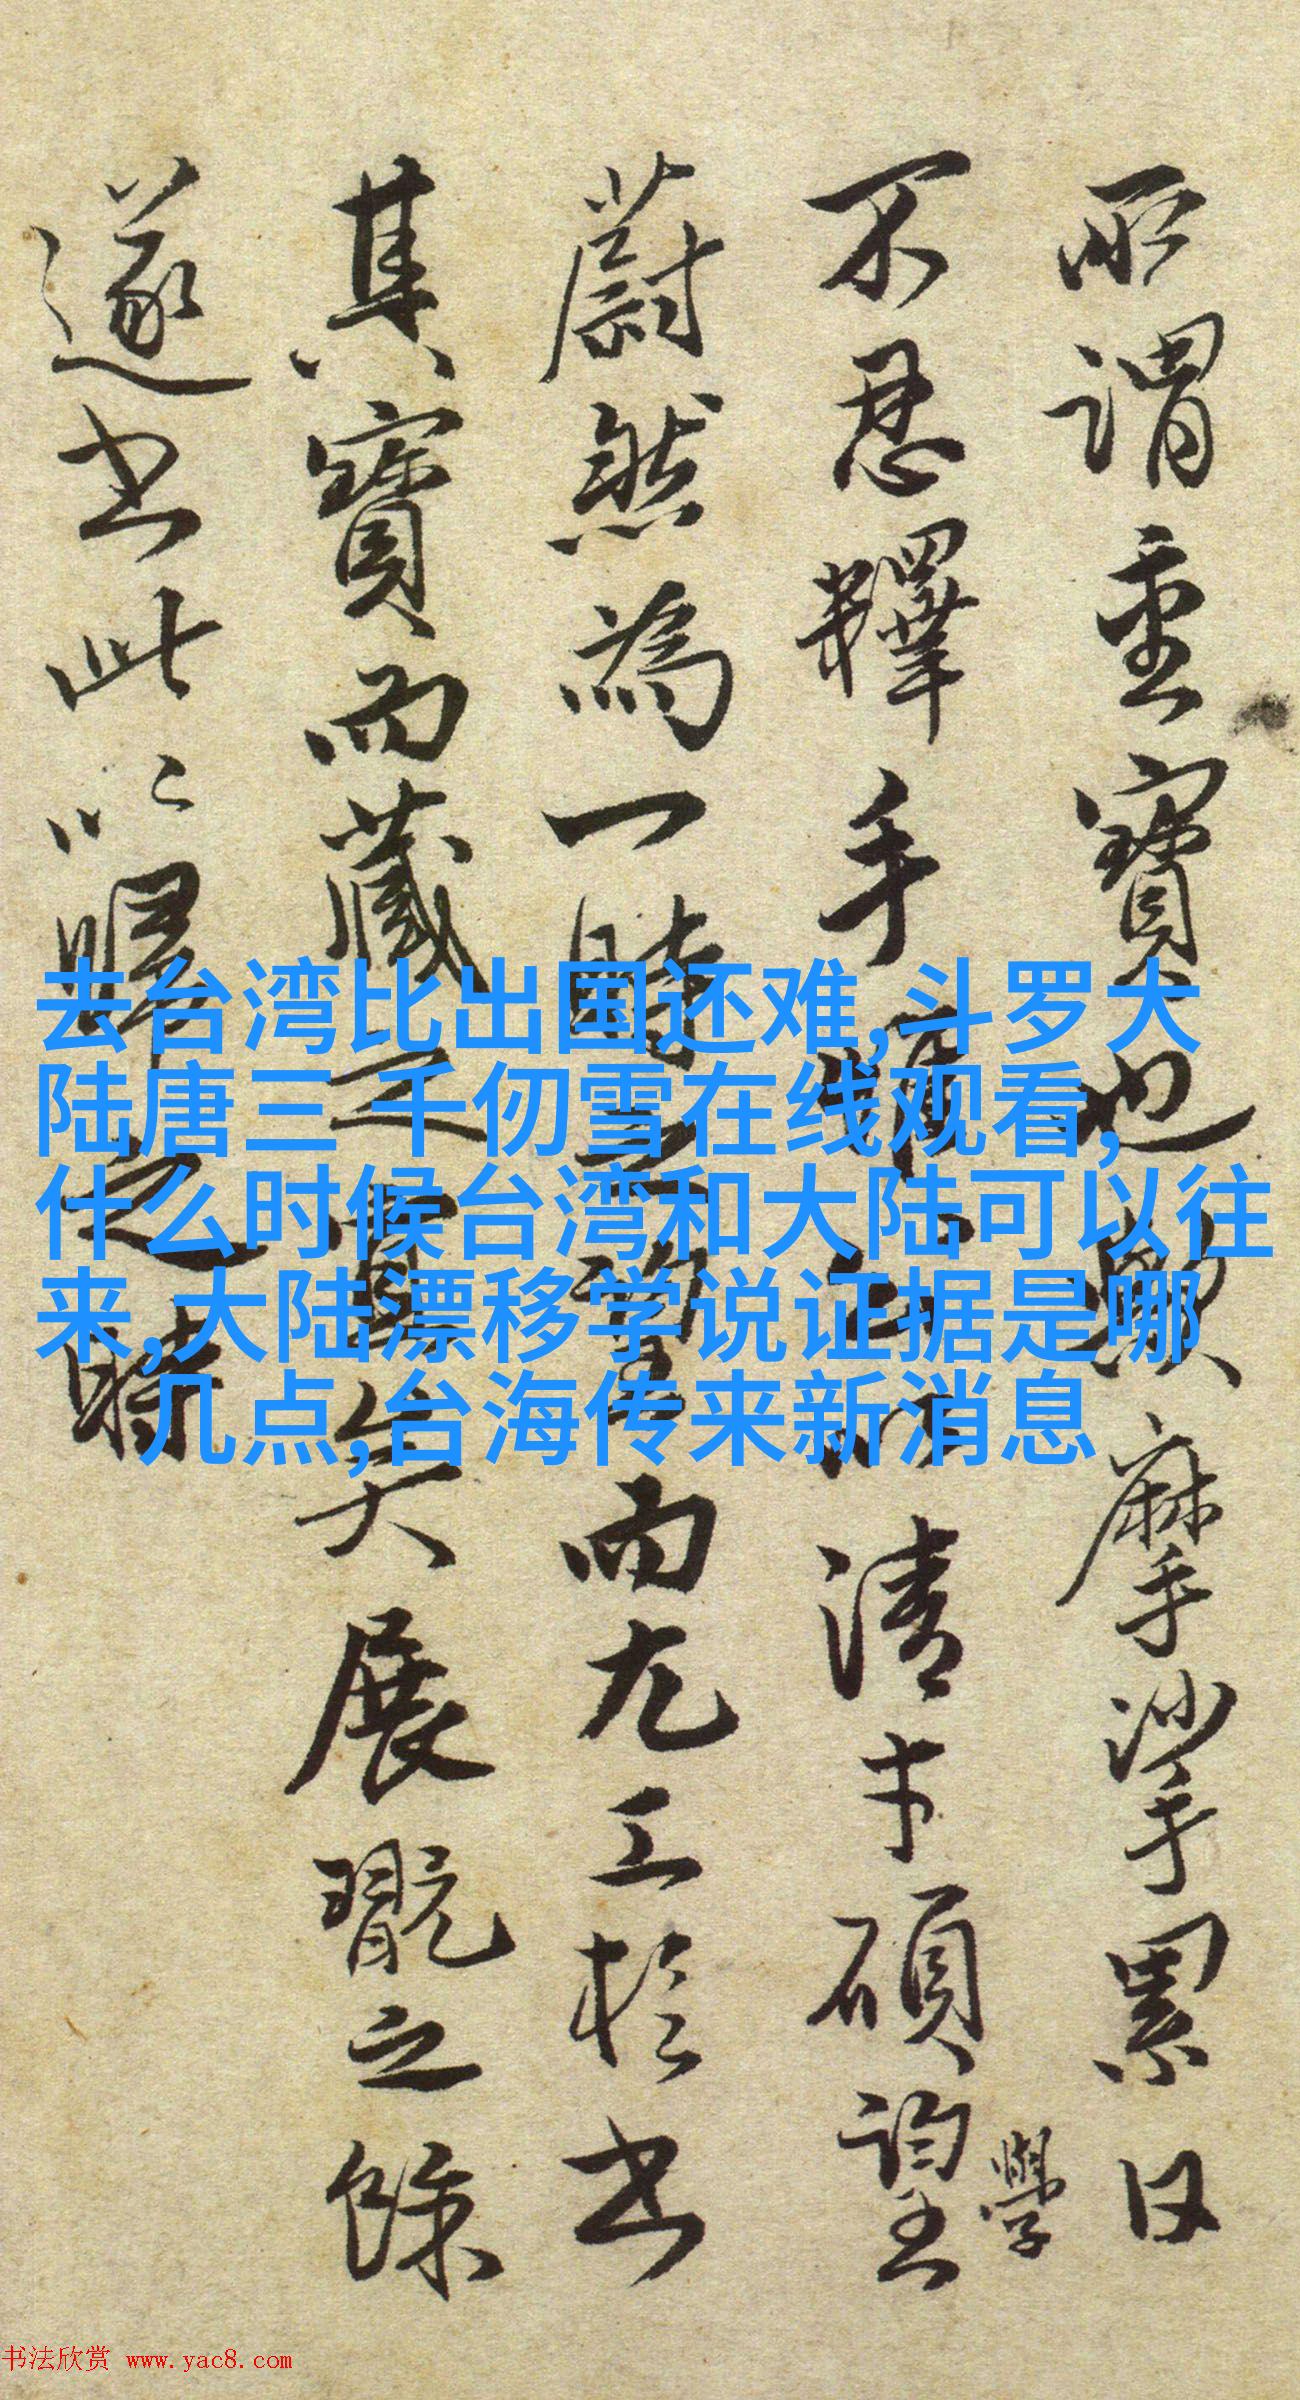 所謂重寶也摩挲累日
不忍釋手清才碩望學
蔚然為一時之望而尤工於書
其寶而藏之宜矣展翫之餘
遂書此以歸之時
去台湾比出国还难,斗罗大
陆唐三 千仞雪在线观看,
什么时候台湾和大陆可以往
来,大陆漂移学说证据是哪
几点,台海传来新消息
书法欣赏 www.yac8.com